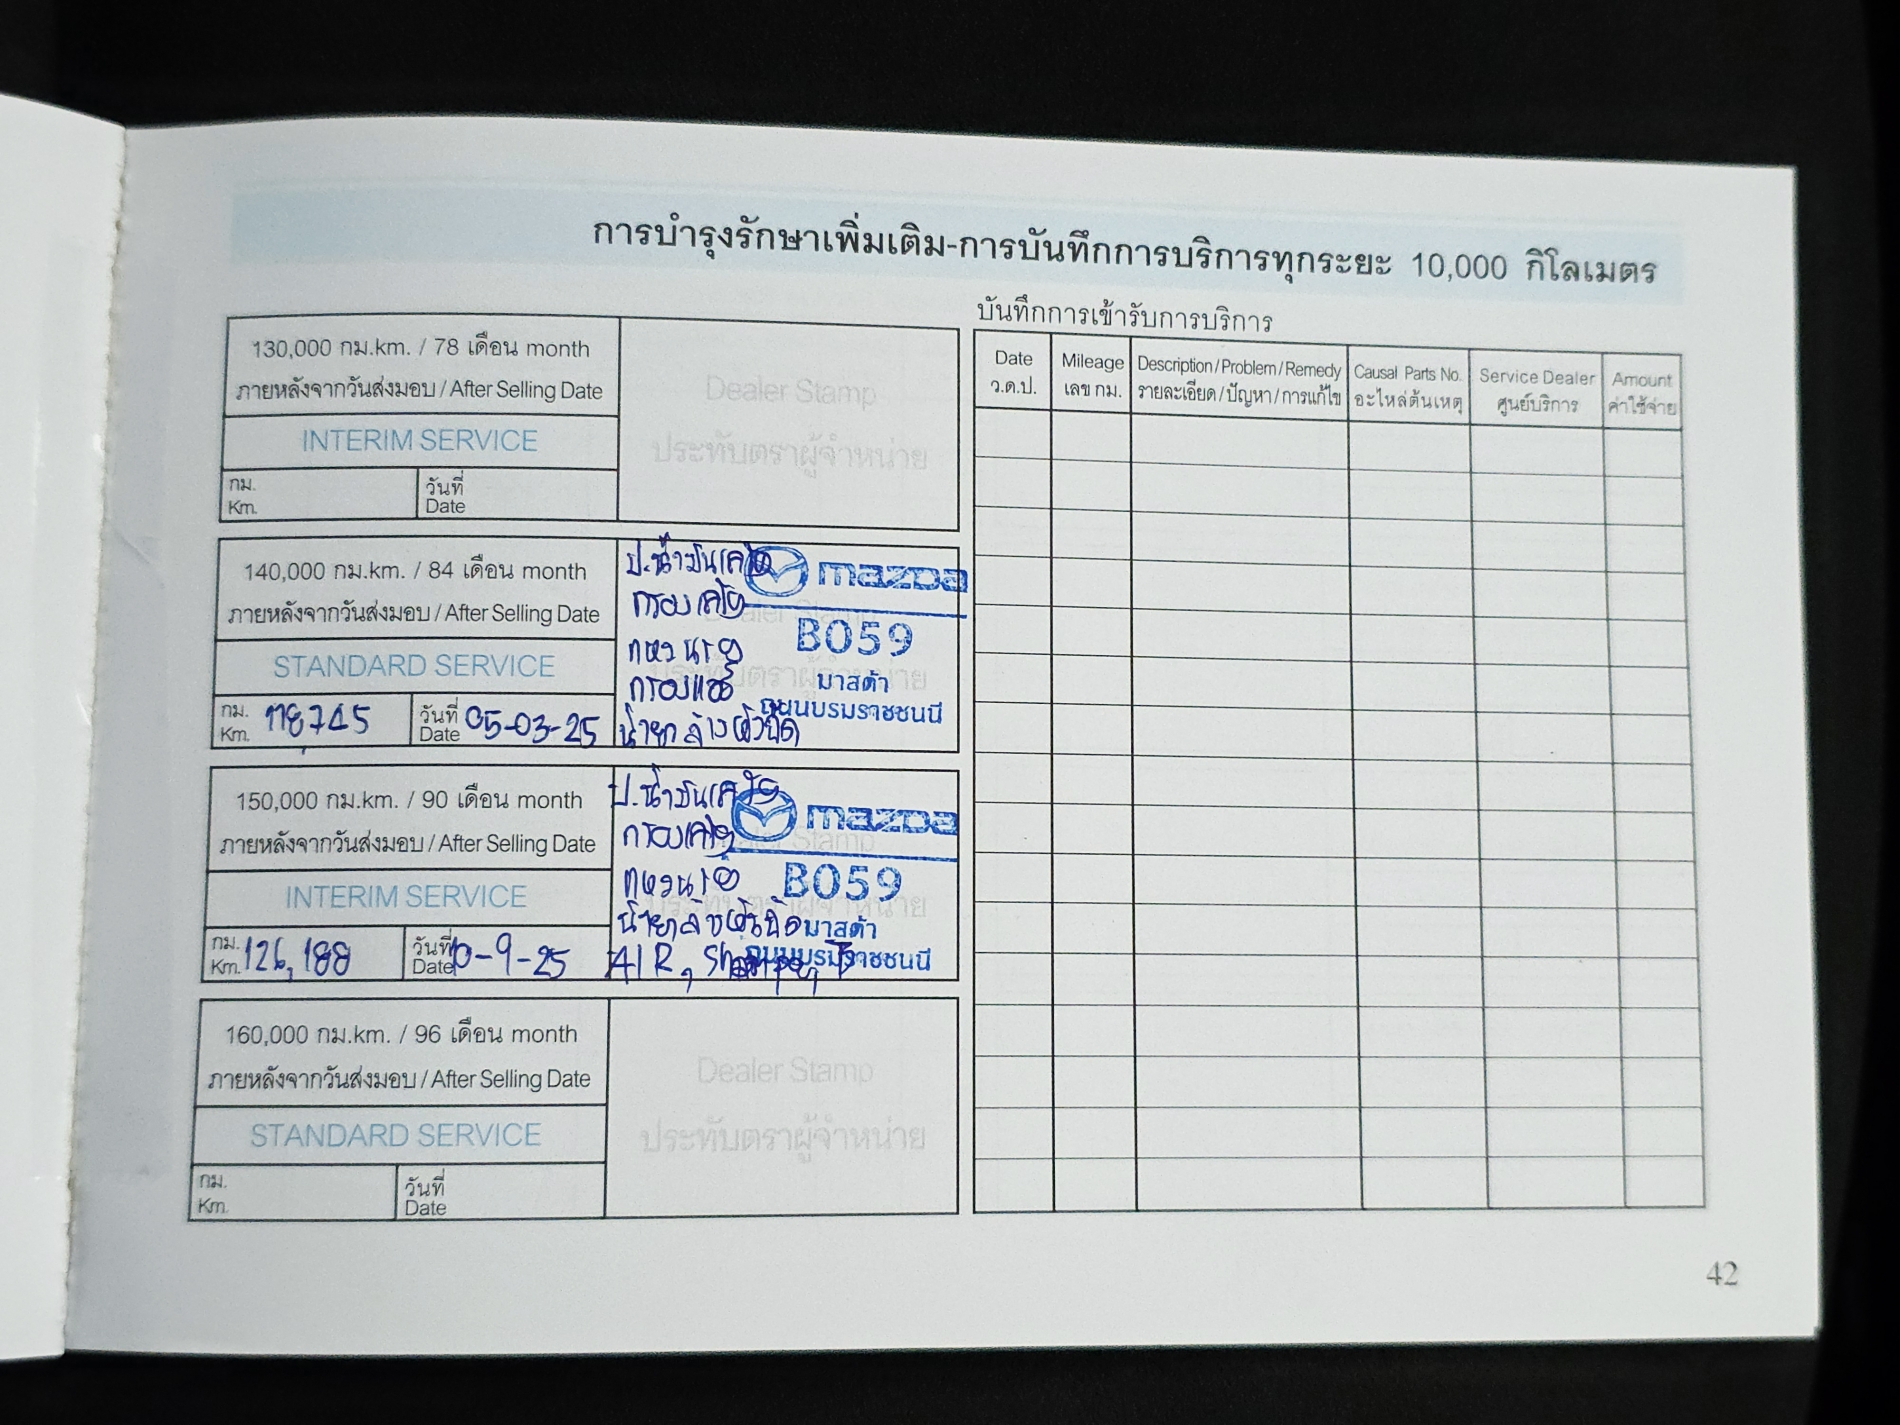 การบำรุงรักษาเพิ่มเติม-การบันทึกการบริการทุกระยะ 10,000 กิโลเมตร
130,000 กม.km. / 78 เดือน month
ภายหลังจากวันส่งมอบ / After Selling Date
INTERIM SERVICE
กม.
Km.
วันที่
Date
Dealer Stamp
ประทับตราผู้จำหน่าย
140,000 กม.km. / 84 เดือน month
ภายหลังจากวันส่งมอบ / After Selling Date
STANDARD SERVICE
กม.
Km. 118745
วันที่
Date 05-03-25
ป.น้ำมันเครื่อง
กรองเครื่อง
แหวนรอง
กรองแอร์
น้ำยาล้างหัวฉีด
mazda
B059
มาสด้า
ถนนบรมราชชนนี
150,000 กม.km. / 90 เดือน month
ภายหลังจากวันส่งมอบ / After Selling Date
INTERIM SERVICE
กม.
Km. 126,188
วันที่
Date 10-9-25
ป.น้ำมันเครื่อง
กรองเครื่อง
แหวนรอง
น้ำยาล้างหัวฉีด
AIR,
mazda
B059
มาสด้า
ถนนบรมราชชนนี
160,000 กม.km. / 96 เดือน month
ภายหลังจากวันส่งมอบ / After Selling Date
STANDARD SERVICE
กม.
Km.
วันที่
Date
Dealer Stamp
ประทับตราผู้จำหน่าย
บันทึกการเข้ารับการบริการ
Date
ว.ด.ป.
Mileage
เลข กม.
Description / Problem / Remedy
รายละเอียด / ปัญหา / การแก้ไข
Causal Parts No.
อะไหล่ต้นเหตุ
Service Dealer
ศูนย์บริการ
Amount
ค่าใช้จ่าย
42